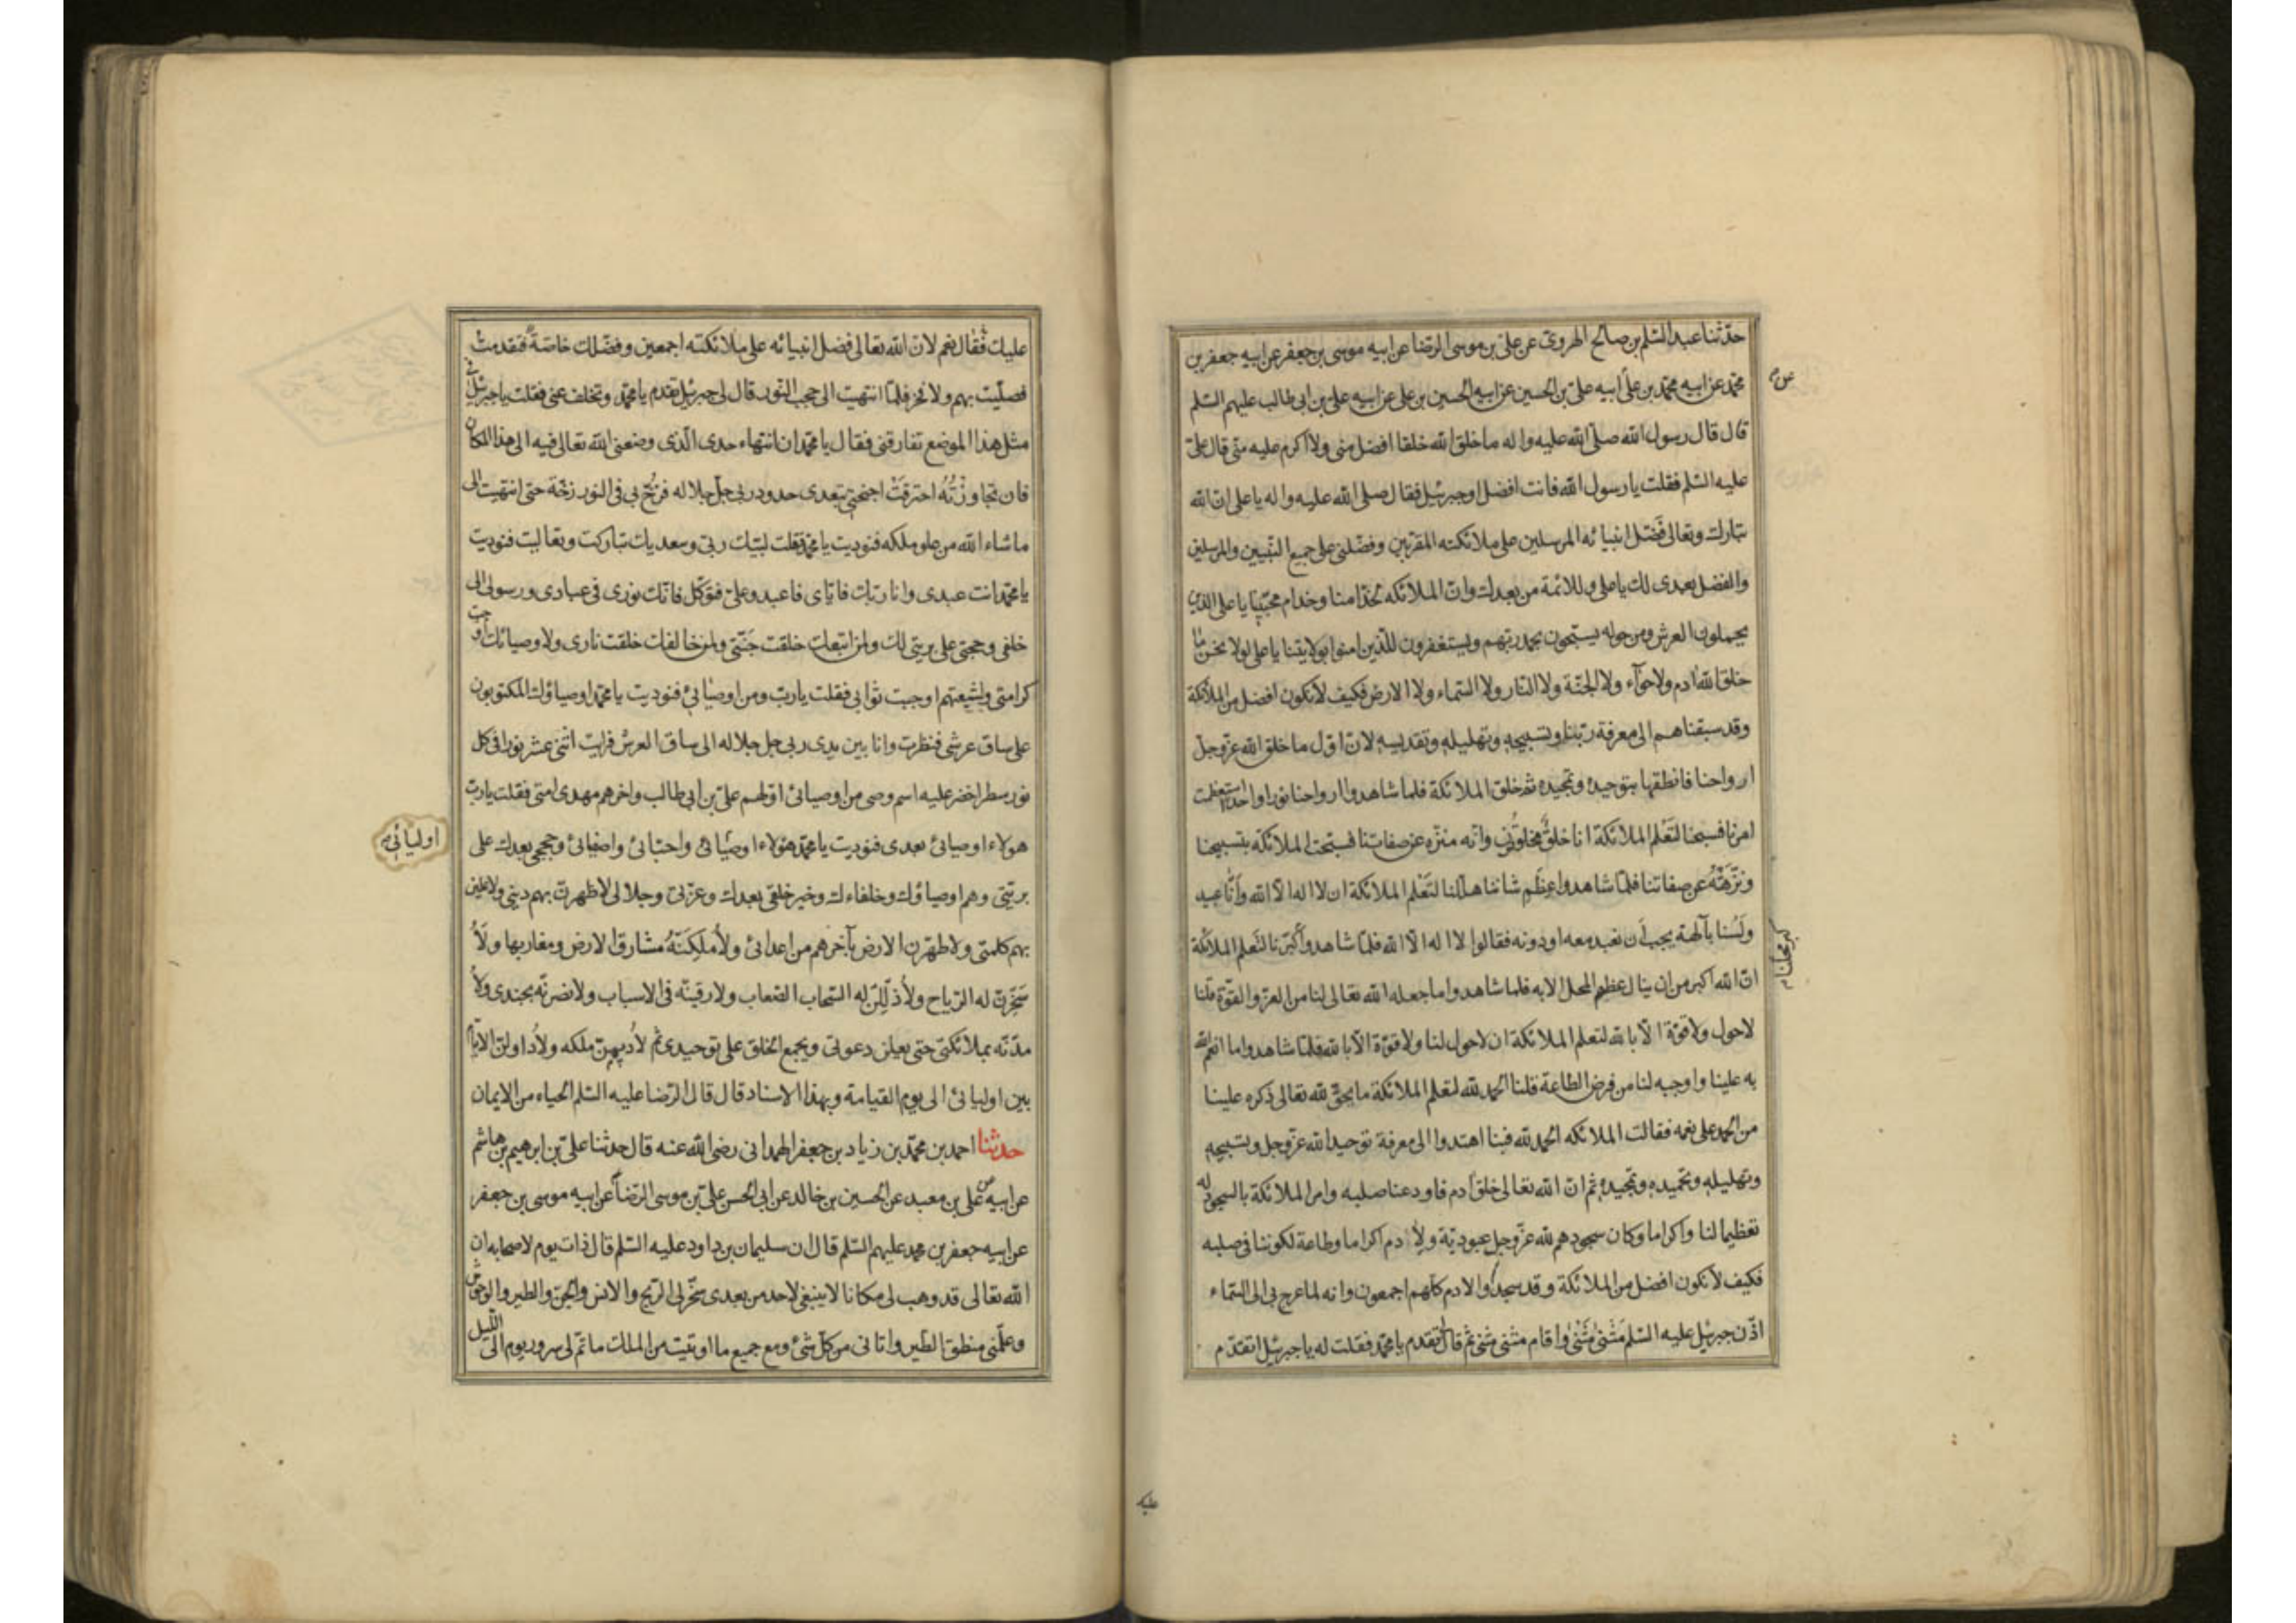 حدّثنا عبد السّلم بن صالح الهروىّ عن علىّ بن موسى الرّضا عن ابيه موسى بن جعفر عن ابيه جعفر بن
محمّد عن ابيه محمّد بن علىّ ابيه علىّ بن الحسين عن ابيه الحسين بن على عن ابيه علىّ بن ابى طالب عليهم السّلم
عن
قال قال رسول الله صلّى الله عليه واله ما خلق الله خلقا افضل منى ولا اكرم عليه منّى قال علىّ
عليه السّلم فقلت يا رسول الله فانت افضل او جبرئيل فقال صلى الله عليه واله يا على ان الله
تبارك وتعالى فَضّل انبيائه المرسلين على ملائكته المقرّبين وفضّلنى على جميع النّبيين والمرسلين
والفضل بعدى لك يا على وللائمة من بعدك وانّ الملائكه لخدّامنا وخدام محبّينا يا على الذين
يحملون العرش ومن حوله يسبّحون بحمد ربّهم ويستغفرون للّذين امنوا بولايتنا يا على لولا نحن ما
خلق الله ادم ولا حوّآء ولا الجنّة ولا النّار ولا السّماء ولا الارض فكيف لا نكون افضل من الملائكة
وقد سبقناهم الى معرفة ربّنا وتسبيحه وتهليله وتقديسه لانّ اوّل ما خلق الله عزّ وجلّ
ارواحنا فانطقها بتوحيده وتمجيده ثمّ خلق الملائكة فلما شاهدوا ارواحنا نورا واحدا استعظمت
امرنا فسبحنا لتَعْلم الملائكة انا خلقٌ مخلوقون وانّه منزّه عن صفاتنا فسبّحت الملائكة بتسبيحنا
ونزّهَتْهُ عن صفاتنا فلمّا شاهدوا عِظَم شاننا هلّلنا لتَعْلم الملائكة ان لا اله الّا الله وَانّا عبيد
ولَسْنا بآلهة يجب أن نعبد معه او دونه فقالوا لا اله الّا الله فلمّا شاهدوا كبّرنا لتَعلم الملائكة
كبر محلّنا
انّ الله اكبر من ان ينال عظم المحل الا به فلما شاهدوا ما جعله الله تعالى لنا من العزّ والقوّة قلنا
لا حول ولا قوّة الّا بالله لتعلم الملائكة ان لا حول لنا ولا قوّة الّا بالله فلمّا شاهدوا ما انعم الله
به علينا واوجبه لنا من فرض الطّاعة قلنا الحمد لله لتعلم الملائكة ما يحقّ لله تعالى ذكره علينا
من الحمد على نعمه فقالت الملائكه الحمد لله فبنا اهتدوا الى معرفة توحيد الله عزّ وجل وتسبيحه
وتهليله وتحميده وتمجيده ثم انّ الله تعالى خلق ادم فاودعنا صلبه وامر الملائكة بالسجود له
تعظيما لنا واكراما وكان سجودهم لله عزّ وجل عبوديّة ولِادم اكراما وطاعة لكوننا فى صلبه
فكيف لا نكون افضل من الملائكة وقد سجدوا لادم كلّهم اجمعون وانه لما عرج بى الى السّماء
اذّن جبرئيل عليه السّلم مَثْنىٰ مَثْنىٰ واقام مثنى مثنى ثم قال تقدم يا محمّد فقلت له يا جبرئيل اتقدّم
عليك
عليك فقال نعم لانّ الله تعالى فضل انبيائه على ملائكته اجمعين وفضّلك خاصّة فتقدمتُ
فصلّيت بهم ولا فخر فلمّا انتهيت الى حجب النّور قال لى جبرئيل تقدم يا محمّد وتخلف عنى فقلت يا جبرئيل فى
مثل هذا الموضع تفارقنى فقال يا محمّد ان انتهاء حدى الّذى وضعنى الله تعالى فيه الى هذا المكان
فان تجاوزْتُهُ احترقَتْ اجنحتى بتعدى حدود ربى جلّ جلاله فزُخّ بى فى النور زخّة حتى انتهيت الى
ما شاء الله من علو ملكه فنوديت يا محمّد فقلت لبّيك ربّى وسعديك تباركت وتعاليت فنوديت
يا محمّد انت عبدى وانا ربّك فايّاى فاعبد وعلىّ فتوكّل فانّك نورى فى عبادى ورسولى الى
خلقى وحجتى على بريتى لك ولمن اتبعك خلقت جَنّتى ولمن خالفك خلقت نارى ولاوصيائك اوجبت
كرامتى ولشيعتهم اوجبت ثوابى فقلت يا ربّ ومن اوصيائى فنوديت يا محمّد اوصياؤك المكتوبون
على ساق عرشى فنظرت وانا بين يدى ربى جل جلاله الى ساق العرش فرايت اثنى عشر نورا فى كل
نور سطر اخضر عليه اسم وصى من اوصيائى اوّلهم علىّ بن ابى طالب واخرهم مهدى امتى فقلت يا ربّ
هولاء اوصيائى بعدى فنوديت يا محمّد هؤلاء اوصيائى واحبّائى واصفيائى وحججى بعدك على
اوليائى
بريّتى وهم اوصياؤك وخلفاءك وخير خلقى بعدك وعزّتى وجلالى لاظهرنّ بهم دينى ولاعلينّ
بهم كلمتى ولاطهّرن الارض بآخرهم من اعدائى ولأملكنّهُ مشارق الارض ومغاربها ولأ
سَخّرنّ له الرّياح ولأذلّلنّ له السّحاب الصّعاب ولارقينّه فى الاسباب ولانصرنّه بجندى ولأ
مدّنّه بملائكتى حتى يعلن دعوتى ويجمع الخلق على توحيدى ثم لأديمنّ ملكه ولأداولنّ الايّام
بين اوليائى الى يوم القيامة وبهذا الاسناد قال قال الرّضا عليه السّلم الحياء من الايمان
حدثنا احمد بن محمّد بن زياد بن جعفر الهمدانى رضى الله عنه قال حدثنا علىّ بن ابرهيم بن هاشم
عن ابيه عن على بن معبد عن الحسين بن خالد عن ابى الحسن علىّ بن موسى الرّضا عن ابيه موسى بن جعفر
عن ابيه جعفر بن محمد عليهم السّلم قال ان سليمان بن داود عليه السّلم قال ذات يوم لاصحابه ان
الله تعالى قد وهب لى مكانا لا ينبغى لاحد من بعدى سخّر لى الرّيح والانس والجنّ والطير والوحوش
وعلّمنى منطق الطّير واتانى من كلّ شئ ومع جميع ما اوتيت من الملك ما تمّ لى سرور يوم الى اللّيل